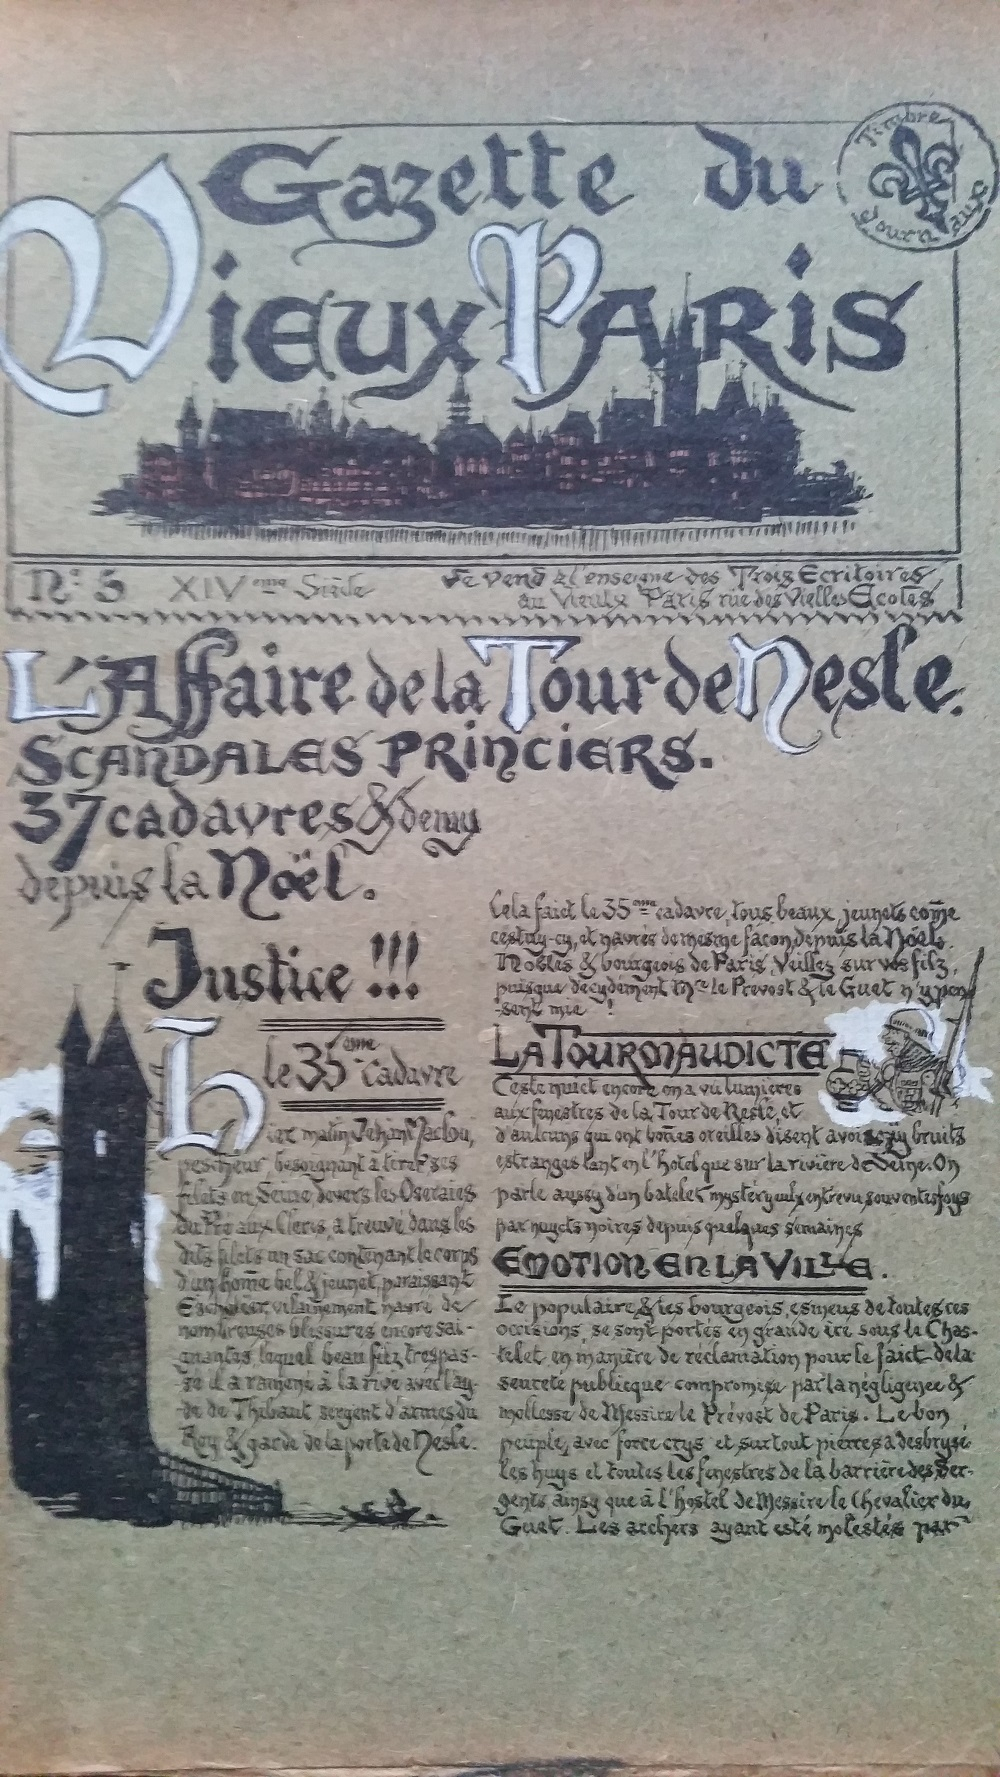 Gazette du
Vieux Paris
Timbre
Journaux
No. 5 XIVème Siècle
Se vend à l'enseigne des Trois Ecritoires,
au Vieulx Paris rue des Vielles Ecoles
L'Affaire de la Tour de Nesle.
Scandales Princiers.
37 cadavres & demy
depuis la Noël.
Justice !!!
le 35ème cadavre
Hier matin Jehan Maclou,
pescheur, besoignant à tirer ses
filets en Seine devers les Oseraies
du Pré aux Clercs, a treuvé dans les
dits filets un sac contenant le corps
d'un home bel & jeunet, paraissant
Escholier, vilainement navré de
nombreuses blissures encore sai-
gnantes, lequel beau filz trespas-
sé il a ramené à la rive avec l'ay-
de de Thibaut sergent d'armes du
Roy & garde de la porte de Nesle.
Cela faict le 35ème cadavre, tous beaux, jeunets come
cestuy-cy, et navrés de mesme façon, depuis la Noël.
Nobles & bourgeois de Paris, Veillez sur vos filz,
puisque décydément Mre le Prevost & le Guet n'y pen
-sent mie !
La Tour Maudicte
Ceste nuict encore on a vu lumières
aux fenestres de la Tour de Nesle, et
d'aulcuns qui ont bones oreilles disent avoir ouy bruits
estranges tant en l'hotel que sur la rivière de Seine. On
parle aussy d'un batelet mystéryeulx entrevu souventesfoys
par nuycts noires depuis quelques semaines
Emotion en la Ville.
Le populaire & les bourgeois, esmeus de toutes ces
occisions, se sont portés en grande ire sous le Chas-
telet en manière de réclamation pour le faict de la
seureté publicque compromise par la négligence &
mollesse de Messire le Prévost de Paris. Le bon
peuple, avec force crys et surtout pierres a desbrysé
les huys et toutes les fenestres de la barrière des Ser-
gents ainsy que à l'hostel de Messire le Chevalier du
Guet. Les archers ayant esté molestés par